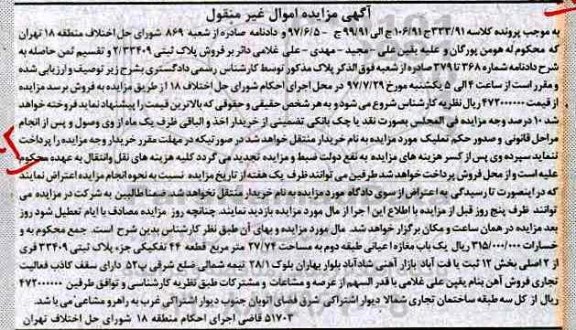 آگهی مزایده اموال غیر منقول
به موجب پرونده کلاسه ۳۳۲/۹۱ ج ۱۰۶/۹۱ ج الی ۹۹/۹۱ ج - ۹۷/۶/۵ و دادنامه صادره از شعبه ۸۶۹ شورای حل اختلاف منطقه ۱۸ تهران
که محکوم له هومن پورگان و علیه یقین علی - مجید - مهدی - علی غلامی دائر بر فروش پلاک ثبتی ۲/۳۳۴۰۹ و تقسیم ثمن حاصله به
شرح دادنامه شماره ۳۶۸ تا ۳۷۹ صادره از شعبه فوق الذکر پلاک مذکور توسط کارشناس رسمی دادگستری بشرح زیر توصیف و ارزیابی شده
و مقرر است از ساعت ۴ الی ۵ یکشنبه مورخ ۹۷/۷/۲۹ در محل اجرای احکام شورای حل اختلاف ۱۸ از طریق مزایده به فروش برسد مزایده
از قیمت ۴۷۲۰۰۰۰۰۰۰ ریال نظریه کارشناس شروع می شود و به هر شخص حقیقی و حقوقی که بالاترین قیمت را پیشنهاد نماید فروخته خواهد
شد ۱۰ درصد وجه مزایده فی المجلس بصورت نقد یا چک بانکی تضمینی از خریدار اخذ و الباقی ظرف یک ماه از وی وصول و پس از انجام
مراحل قانونی و صدور حکم تملیک مورد مزایده به نام خریدار منتقل خواهد شد در صورتیکه در مهلت مقرر خریدار وجه مزایده را پرداخت
ننماید سپرده وی پس از کسر هزینه های مزایده به نفع دولت ضبط و مزایده تجدید می گردد کلیه هزینه های نقل وانتقال به عهده محکوم
علیه است و از محل فروش پرداخت خواهد شد طرفین می توانند ظرف یک هفته از تاریخ مزایده نسبت به نحوه انجام مزایده اعتراض نمایند
که در اینصورت تا رسیدگی به اعتراض از سوی دادگاه مورد مزایده به نام خریدار منتقل نخواهد شد. ضمنا طالبین به شرکت در مزایده می
توانند ظرف پنج روز قبل از مزایده با اطلاع این اجرا از مال مورد مزایده بازدید نمایند. چنانچه روز مزایده مصادف با ایام تعطیل شود روز
بعد مزایده در همان ساعت و مکان برگزار خواهد شد. مال مورد مزایده و بهای آن طبق نظر کارشناس بدین شرح است. جمع محکوم به و
خسارات ۳۱۵/۰۰۰/۰۰۰ ریال یک باب مغازه اعیانی طبقه دوم به مساحت ۲۷/۷۴ متر مربع قطعه ۴۴ تفکیکی جزء پلاک ثبتی ۳۳۴۰۹ فری
از ۲ اصلی بخش ۱۲ ثبت یا فت آباد بازار آهنی شادآباد بلوار بهاران بلوک ۲۸/۱ نیمه شمالی ضلع شرقی پ ۵۲ دارای سقف کاذب فعالیت
تجاری فروش آهن بنام یقین علی غلامی با قدر السهم از عرصه و مشاعات و مشترکات طبق نظریه کارشناسی و توافق طرفین ۴۷۲۰۰۰۰۰۰۰
ریال از کل سه طبقه ساختمان تجاری شمالا دیوار اشتراکی شرق فضای اتوبان جنوب دیوار اشتراکی غرب به راهرو مشاعی می باشد.
۵۱۷۰۳ قاضی اجرای احکام منطقه ۱۸ شورای حل اختلاف تهران